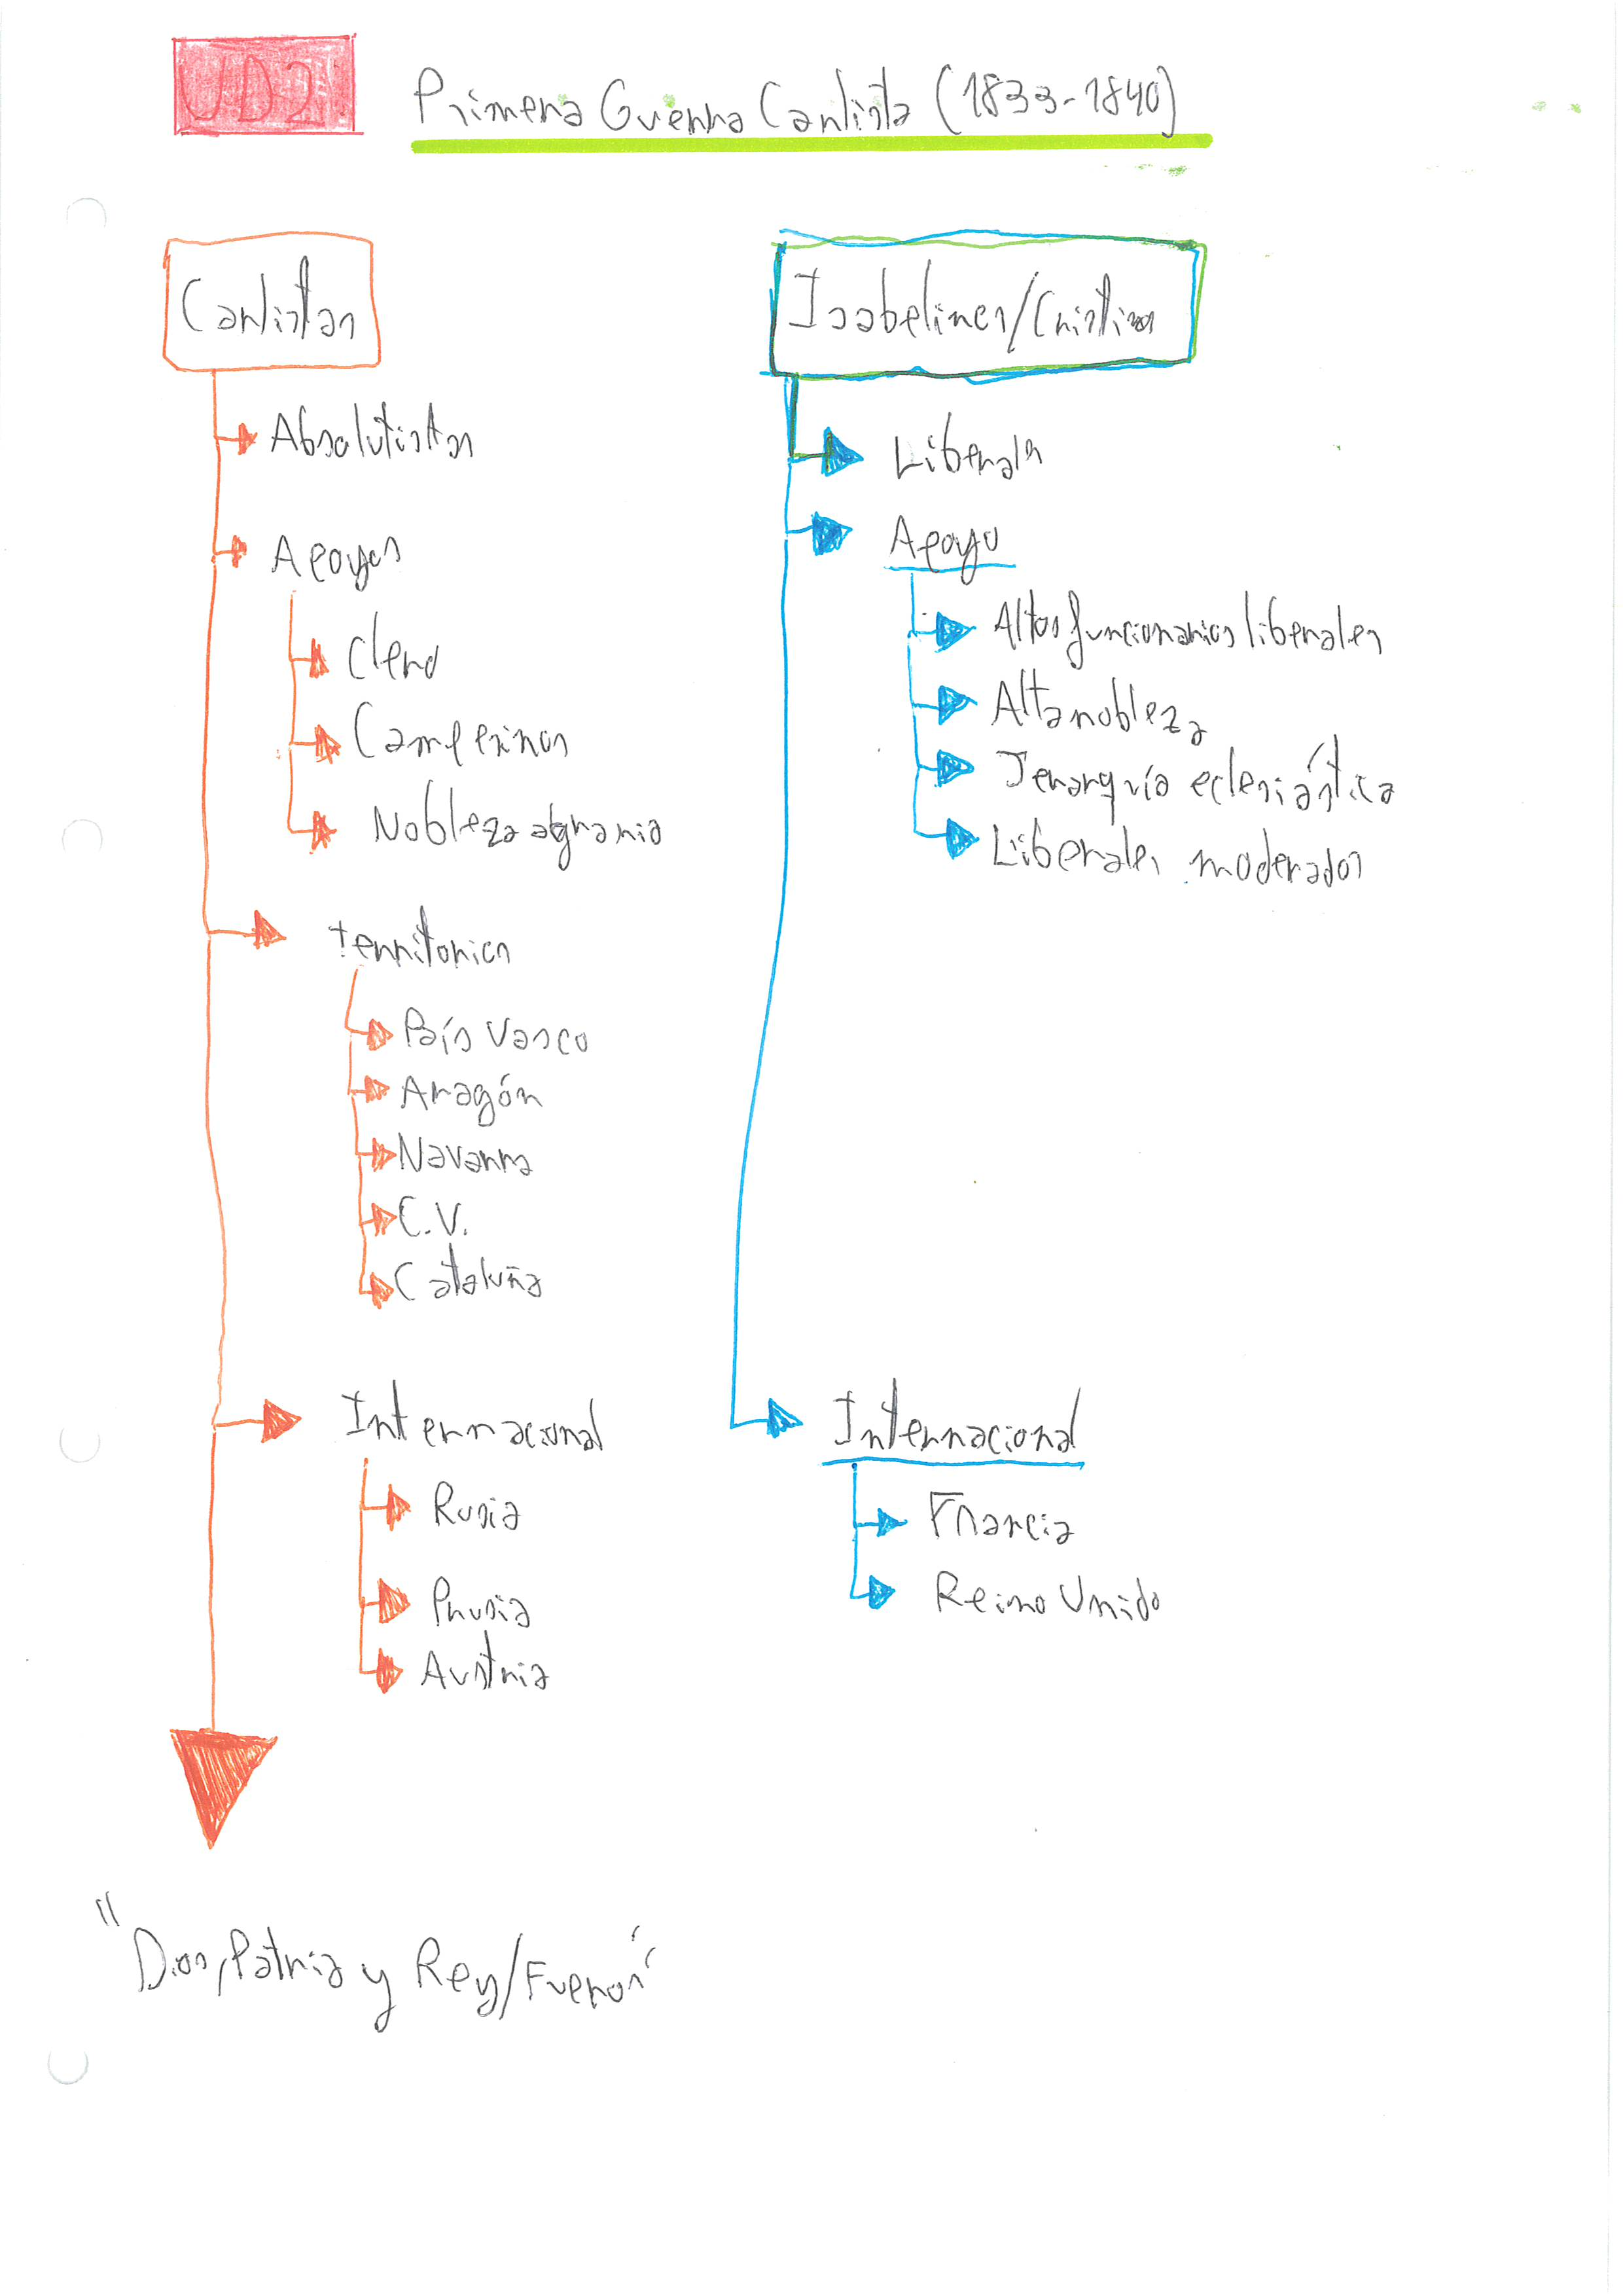 UD2
Primera Guerra Carlista (1833-1840)
Carlistas
Absolutistas
Apoyos
Clero
Campesinos
Nobleza agraria
territorios
País Vasco
Aragón
Navarra
C.V.
Cataluña
Internacional
Rusia
Prusia
Austria
"Dios, Patria y Rey/Fueros"
Isabelinos/Cristinos
Liberales
Apoyo
Altos funcionarios liberales
Alta nobleza
Jerarquía eclesiástica
Liberales moderados
Internacional
Francia
Reino Unido